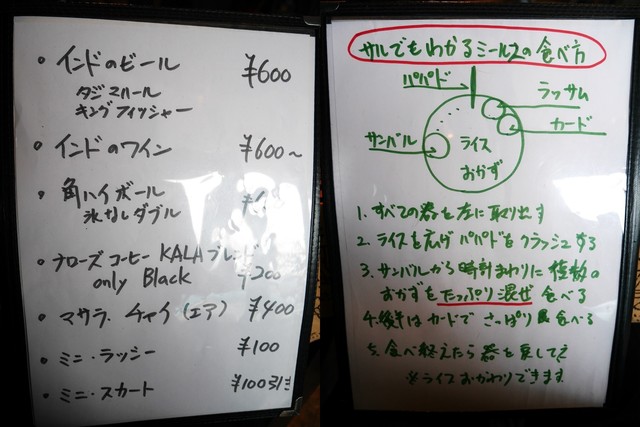 インドのビール ¥600
タジマハール
キングフィッシャー
インドのワイン ¥600〜
角ハイボール
氷なしダブル
ナローズコーヒー KALAブレンド
only Black ¥200
マサラ・チャイ(エア) ¥400
ミニ・ラッシー ¥100
ミニ・スカート ¥100引き
サルでもわかるミールスの食べ方
パパド
ラッサム
カード
サンバル
ライス
おかず
1. すべての器を左に取り出す
2. ライスを広げパパドをクラッシュする
3. サンバルから時計まわりに複数の
おかずをたっぷり混ぜ食べる
4. 後半はカードでさっぱり食べる
5. 食べ終えたら器を戻して
※ライスおかわりできます